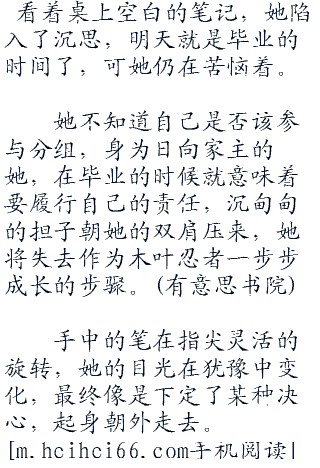 看着桌上空白的笔记，她陷
入了沉思，明天就是毕业的
时间了，可她仍在苦恼着。
她不知道自己是否该参
与分组，身为日向家主的
她，在毕业的时候就意味着
要履行自己的责任，沉甸甸
的担子朝她的双肩压来，她
将失去作为木叶忍者一步步
成长的步骤。(有意思书院)
手中的笔在指尖灵活的
旋转，她的目光在犹豫中变
化，最终像是下定了某种决
心，起身朝外走去。
[m.hcihci66.com手机阅读|